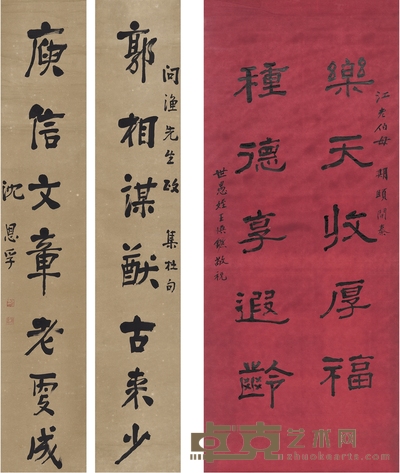 江
伯母
樂天收厚福
種德享遐齡
世愚姪王
敬祝
郭相謀猷古來少
問漁先生政 集杜句
庾信文章老更成
沈恩孚
卓克艺术网